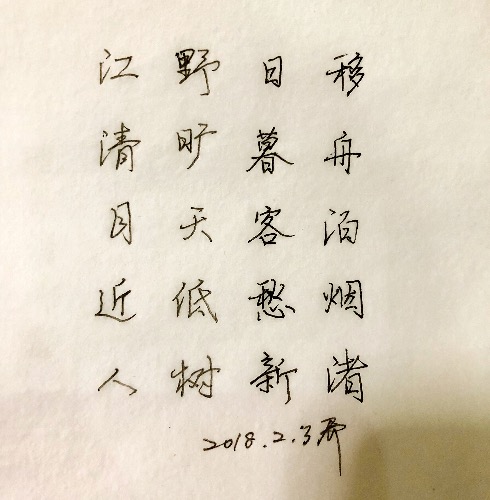 移舟泊烟渚
日暮客愁新
野旷天低树
江清月近人
2018.2.3